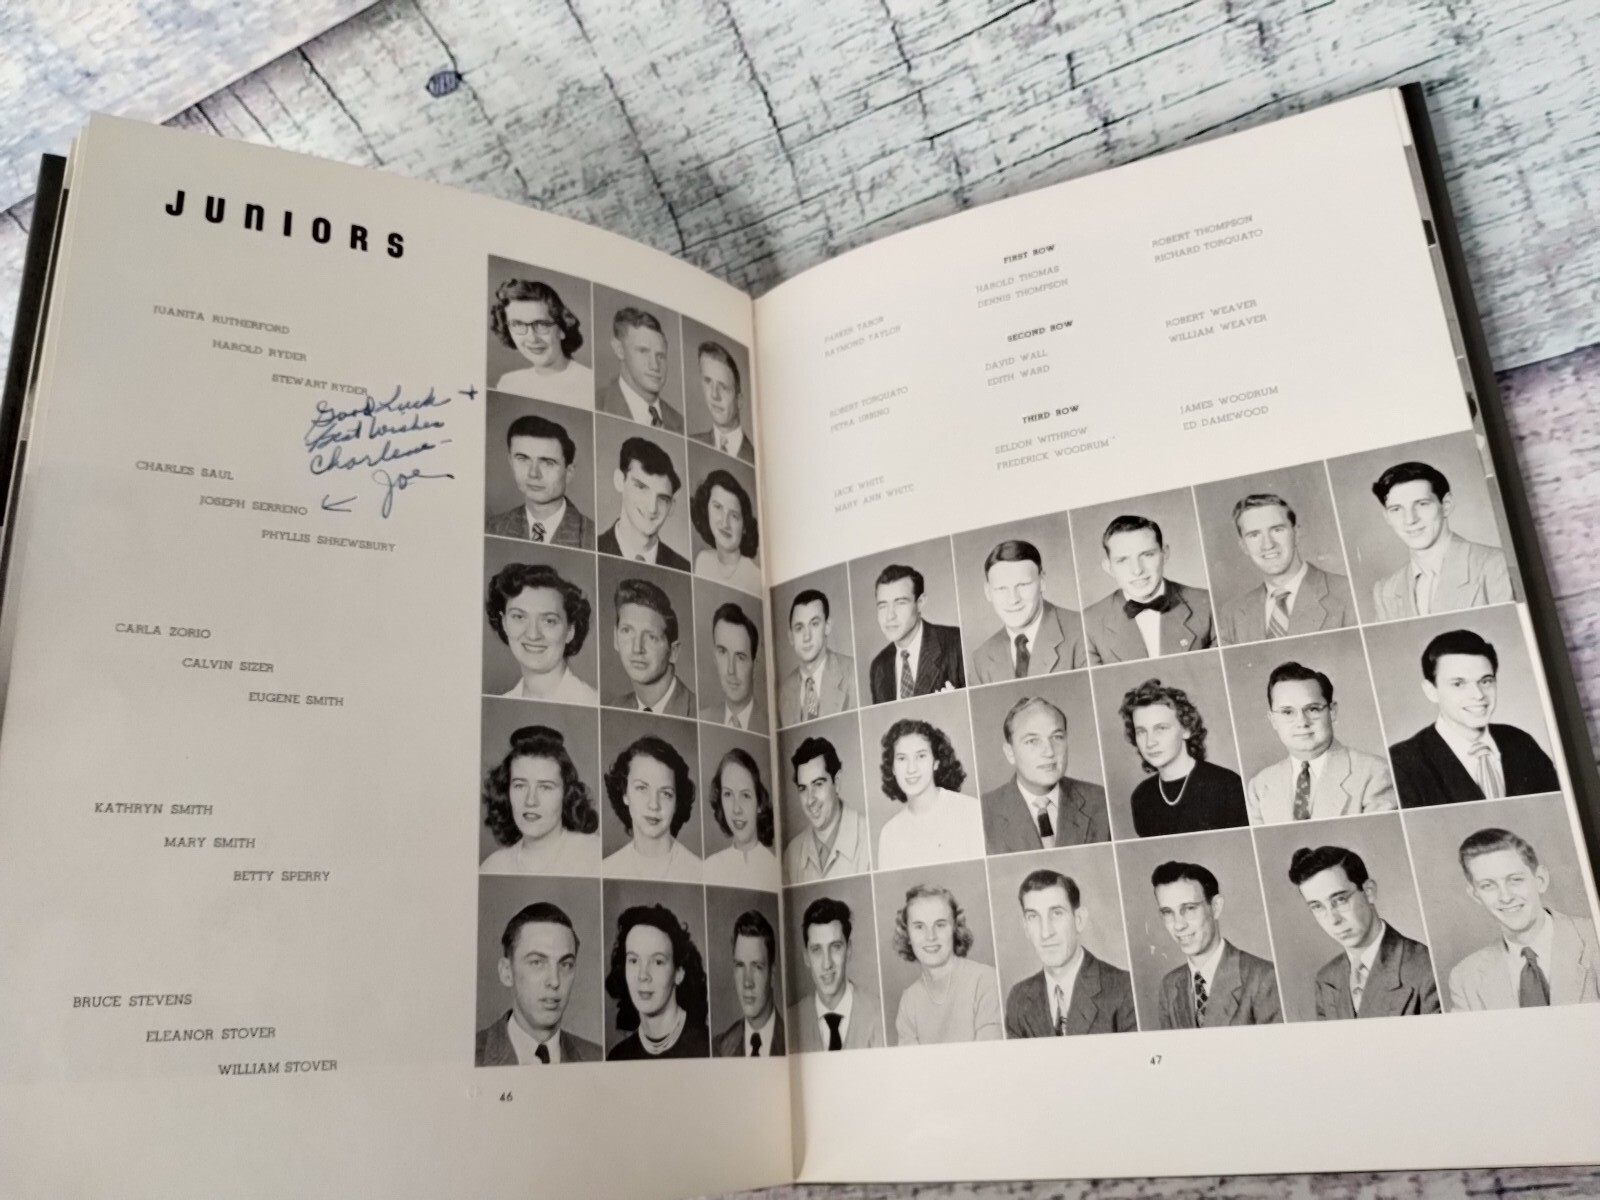 JUNIORS
JUANITA RUTHERFORD
HAROLD RYDER
STEWART RYDER
Good Luck +
Best Wishes
Charlene -
Joe
CHARLES SAUL
JOSEPH SERRENO
PHYLLIS SHREWSBURY
CARLA ZORIO
CALVIN SIZER
EUGENE SMITH
KATHRYN SMITH
MARY SMITH
BETTY SPERRY
BRUCE STEVENS
ELEANOR STOVER
WILLIAM STOVER
46
FIRST ROW
PARKER TABOR
RAYMOND TAYLOR
HAROLD THOMAS
DENNIS THOMPSON
ROBERT THOMPSON
RICHARD TORQUATO
SECOND ROW
ROBERT TORQUATO
PETRA URBINO
DAVID WALL
EDITH WARD
ROBERT WEAVER
WILLIAM WEAVER
THIRD ROW
JACK WHITE
MARY ANN WHITE
SELDON WITHROW
FREDERICK WOODRUM
JAMES WOODRUM
ED DAMEWOOD
47